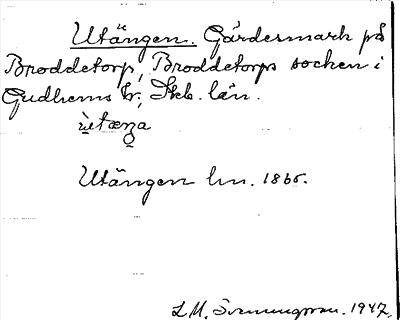 Utängen. Gärdesmark på
Broddetorp, Broddetorps socken i
Gudhems hr, Skb. län.
ùtæŋa
Utängen lm. 1865.
1947.